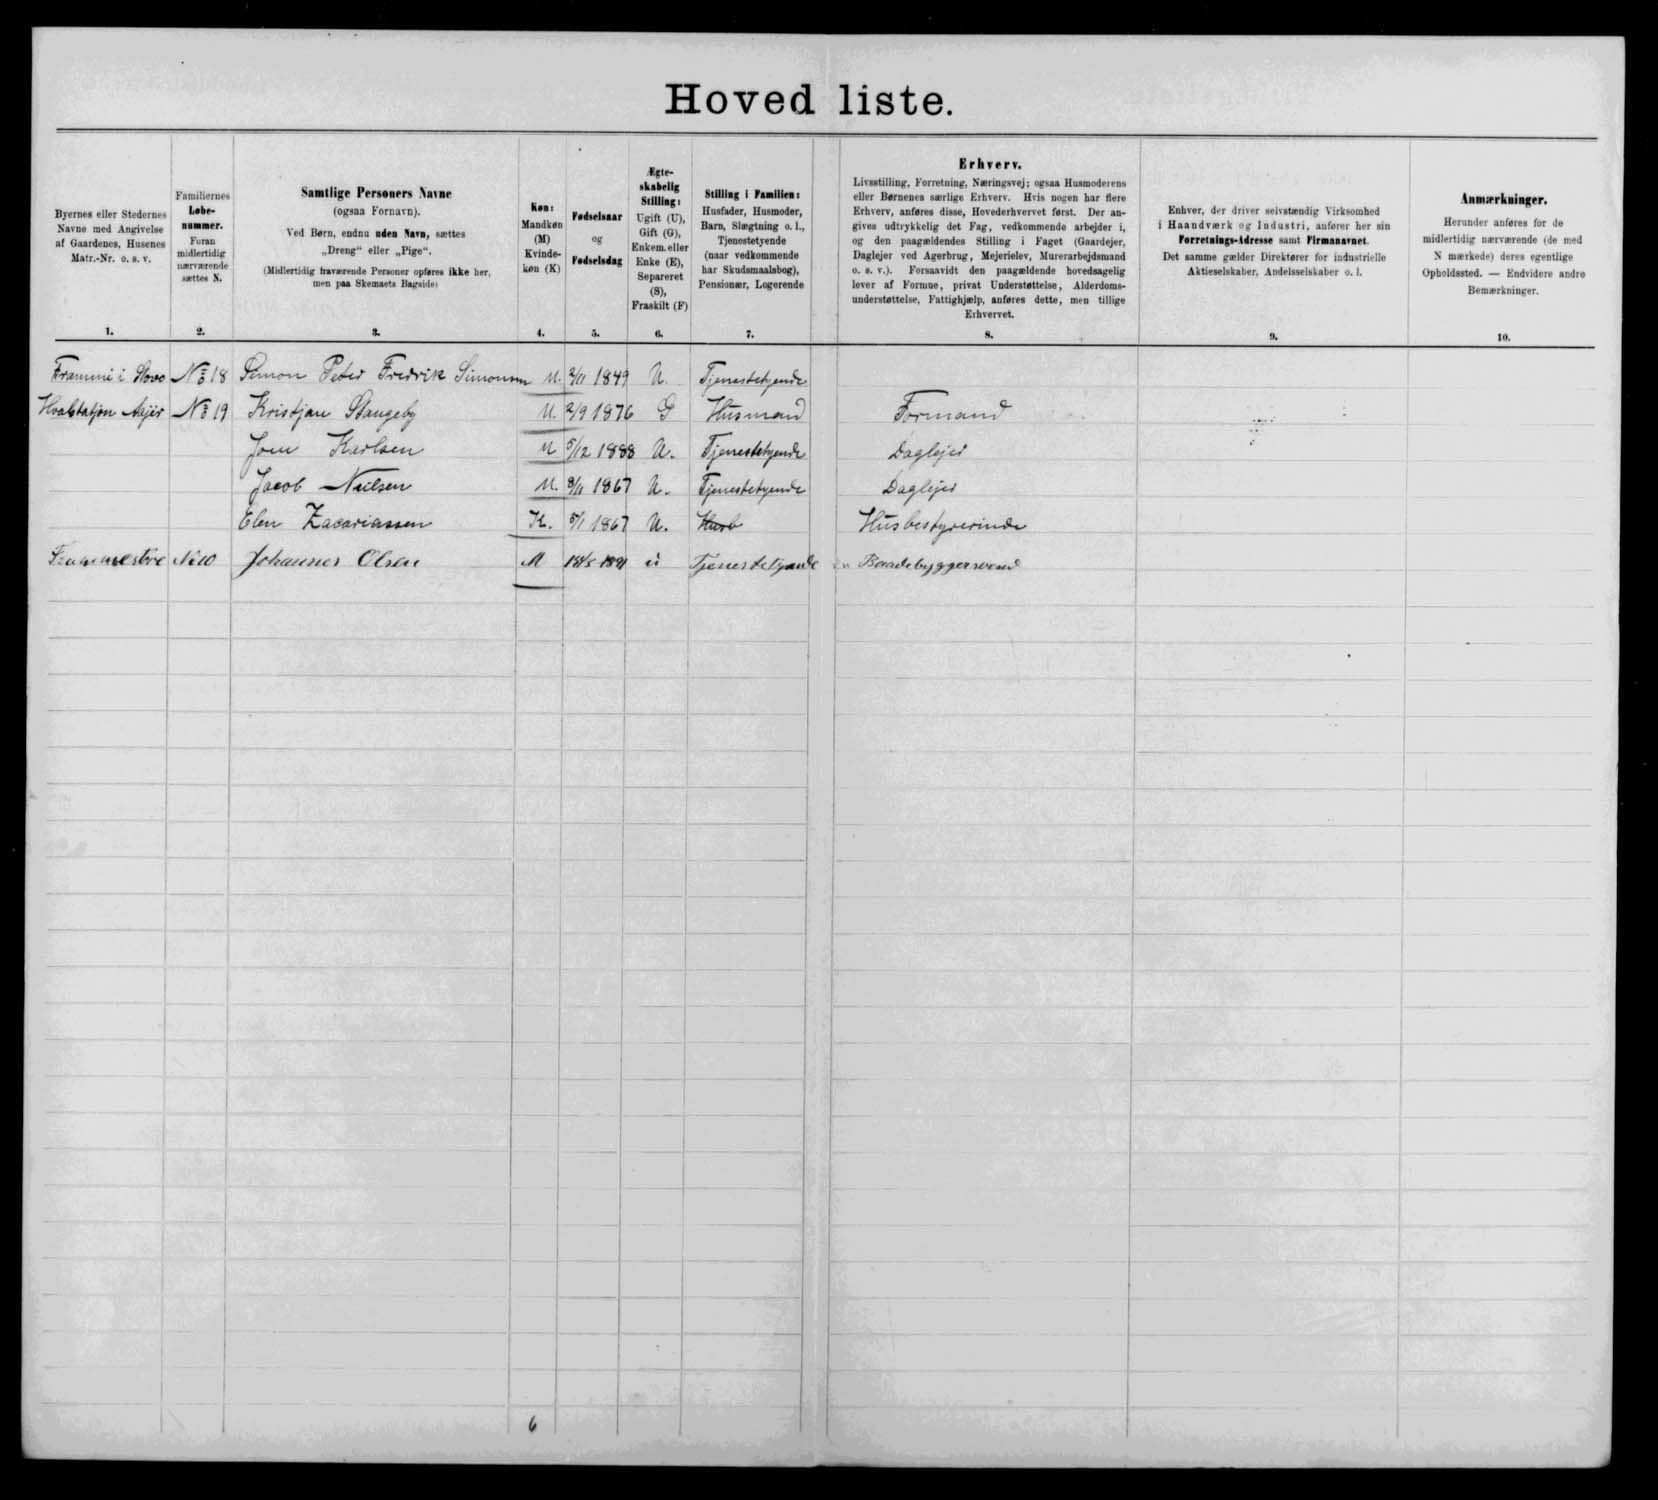 Hoved liste.
Byernes eller Stedernes
Navne med Angivelse
af Gaardenes, Husenes
Matr.-Nr. o. s. v.
1.
Familiernes
Løbe-
nummer.
Foran
midlertidig
nærværende
sættes N.
2.
Samtlige Personers Navne
(ogsaa Fornavn).
Ved Børn, endnu uden Navn, sættes
„Dreng“ eller „Pige“.
(Midlertidig fraværende Personer opføres ikke her,
men paa Skemaets Bagside)
3.
Køn:
Mandkøn
(M)
Kvinde-
køn (K)
4.
Fødselsaar
og
Fødselsdag
5.
Ægte-
skabelig
Stilling:
Ugift (U),
Gift (G),
Enkem. eller
Enke (E),
Separeret
(S),
Fraskilt (F)
6.
Stilling i Familien:
Husfader, Husmoder,
Barn, Slægtning o. l.,
Tjenestetyende
(naar vedkommende
har Skudsmaalsbog),
Pensionær, Logerende
7.
Erhverv.
Livsstilling, Forretning, Næringsvej; ogsaa Husmoderens
eller Børnenes særlige Erhverv. Hvis nogen har flere
Erhverv, anføres disse, Hovederhvervet først. Der an-
gives udtrykkelig det Fag, vedkommende arbejder i,
og den paagældendes Stilling i Faget (Gaardejer,
Daglejer ved Agerbrug, Mejerielev, Murerarbejdsmand
o. s. v.). Forsaavidt den paagældende hovedsagelig
lever af Formue, privat Understøttelse, Alderdoms-
understøttelse, Fattighjælp, anføres dette, men tillige
Erhvervet.
8.
Enhver, der driver selvstændig Virksomhed
i Haandværk og Industri, anfører her sin
Forretnings-Adresse samt Firmanavnet.
Det samme gælder Direktører for industrielle
Aktieselskaber, Andelsselskaber o. l.
9.
Anmærkninger.
Herunder anføres for de
midlertidig nærværende (de med
N mærkede) deres egentlige
Opholdssted. — Endvidere andre
Bemærkninger.
10.
Frammi i No 18 Simon Peter Fredrik Simonsen M. 2/11 1849 U. Tjenestetyende
Hvalstatjon Aajer No 19 Kristjan Stangeby M. 2/9 1876 G Husmand Formand
Joen Karlsen M 5/12 1888 U. Tjenestetyende Daglejer
Jacob Nielsen M. 8/11 1867 U. Tjenestetyende Daglejer
Elen Zacariassen K. 5/1 1867 U. Husb Husbestyrerinde
No 10 Johannes Olsen M u Tjenestetyende Baadebyggersvend
6